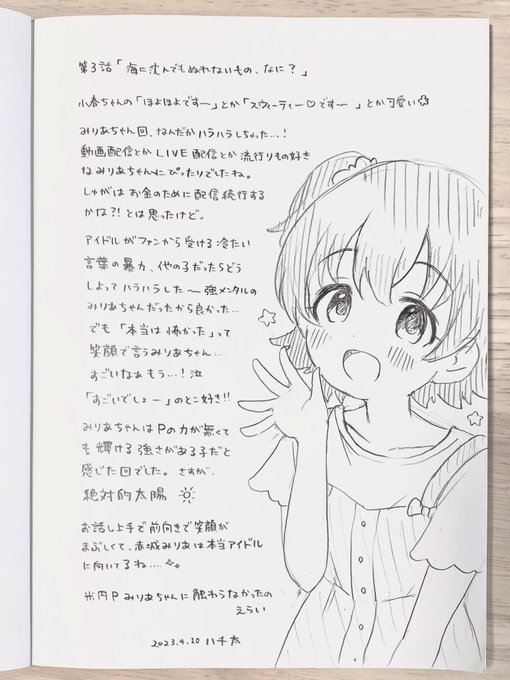 第3話「海に沈んでもぬれないもの、なに？」
小春ちゃんの「ほよほよです〜」とか「スウィーティー♡です〜」とか可愛い☆
みりあちゃん回、なんだかハラハラしちゃった…！
動画配信とかLIVE配信とか流行りもの好き
なみりあちゃんにぴったりでしたね。
しゅがはお金のために配信続行する
かな?!とは思ったけど。
アイドルがファンから受ける冷たい
言葉の暴力、他の子だったらどう
しよってハラハラした〜強メンタルの
みりあちゃんだったから良かった…
でも「本当は怖かった」って
笑顔で言うみりあちゃん…
すごいなぁもう…！泣
「すごいでしょー」のとこ好き!!
みりあちゃんはPの力が無くて
も輝ける強さがある子だと
感じた回でした。さすが、
絶対的太陽
お話し上手で前向きで笑顔が
まぶしくて、赤城みりあは本当アイドル
に向いてるね…
米内Pみりあちゃんに触わらなかったの
えらい
2023.4.20 ハチ太